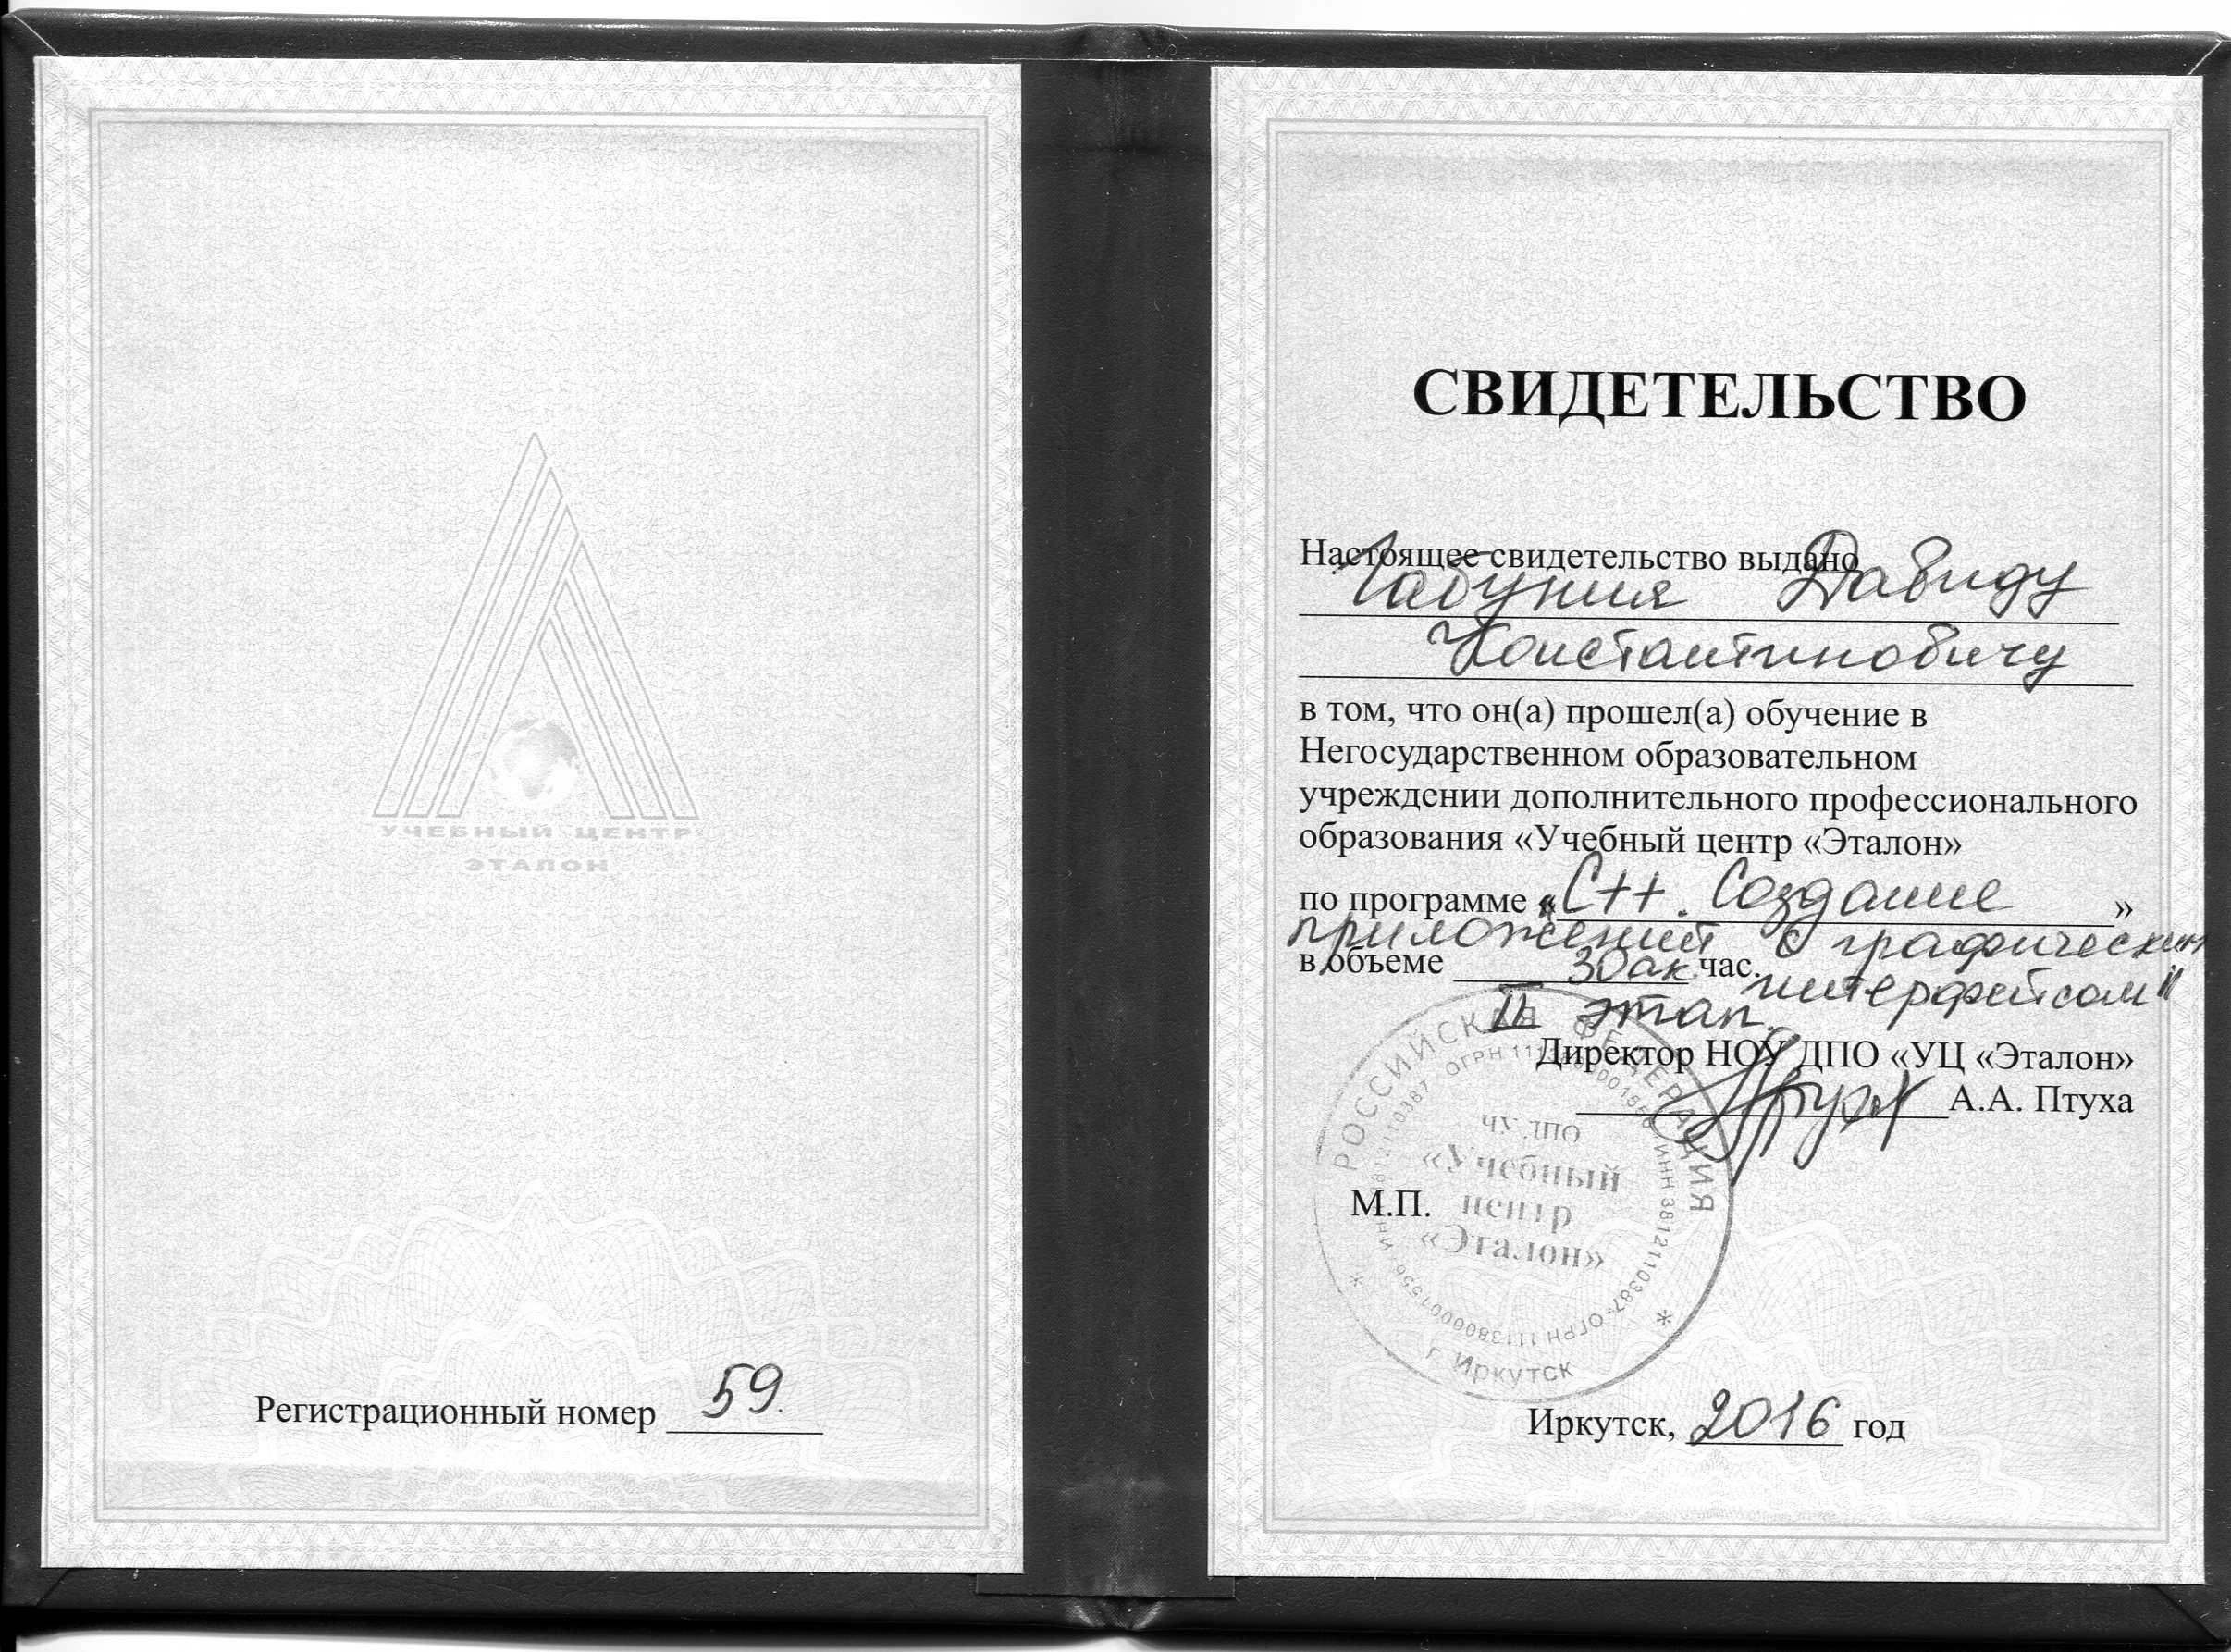 УЧЕБНЫЙ ЦЕНТР
ЭТАЛОН
Регистрационный номер 59.
СВИДЕТЕЛЬСТВО
Настоящее свидетельство выдано
Давиду
Константиновичу
в том, что он(а) прошел(а) обучение в
Негосударственном образовательном
учреждении дополнительного профессионального
образования «Учебный центр «Эталон»
по программе «С++. Создание»
приложений с графическим
в объеме 30 ак час.
интерфейсом"
II этап.
Директор НОУ ДПО «УЦ «Эталон»
А.А. Птуха
РОССИЙСКАЯ ФЕДЕРАЦИЯ
ЧУ ДПО
«Учебный
центр
«Эталон»
М.П.
г Иркутск
Иркутск, 2016 год